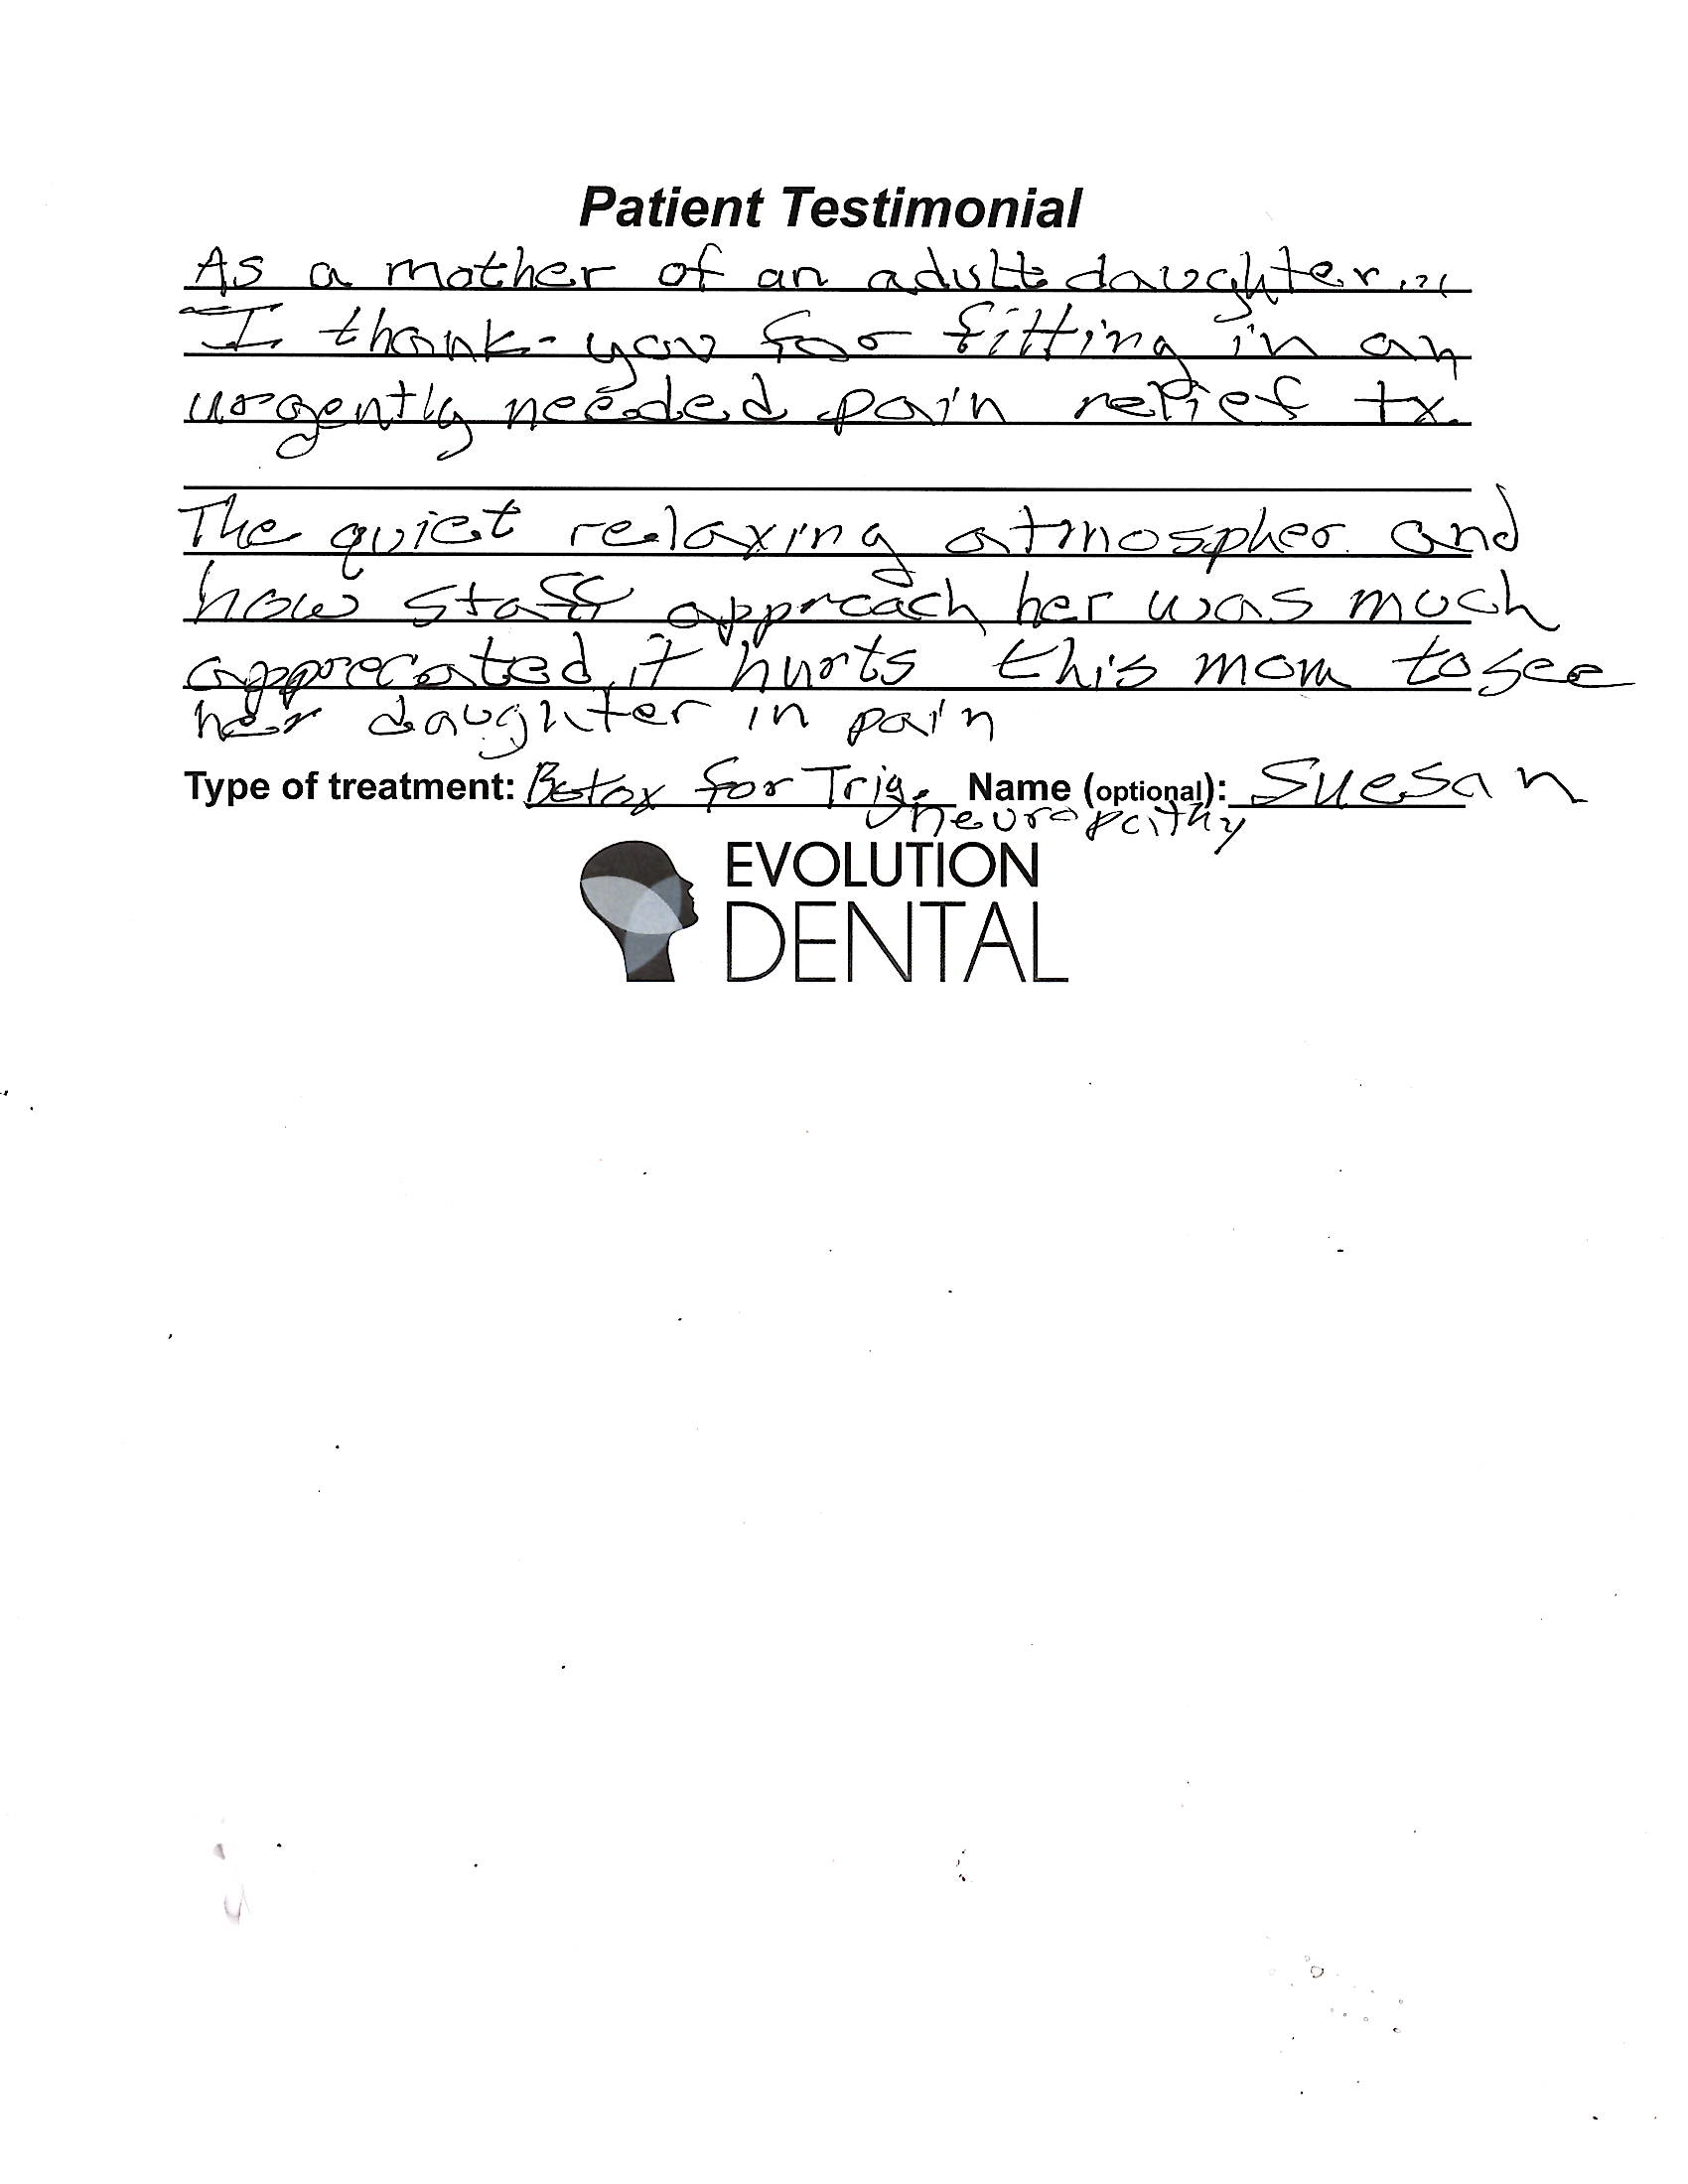 Patient Testimonial
As a mother of an adult daughter...
I thank-you for fitting in an
urgently needed pain relief tx.
The quiet relaxing atmospher and
how staff approach her was much
apprecated, it hurts this mom to see
her daughter in pain
Type of treatment: Botox for Trig. Name (optional): Suesan
neuropathy
EVOLUTION
DENTAL